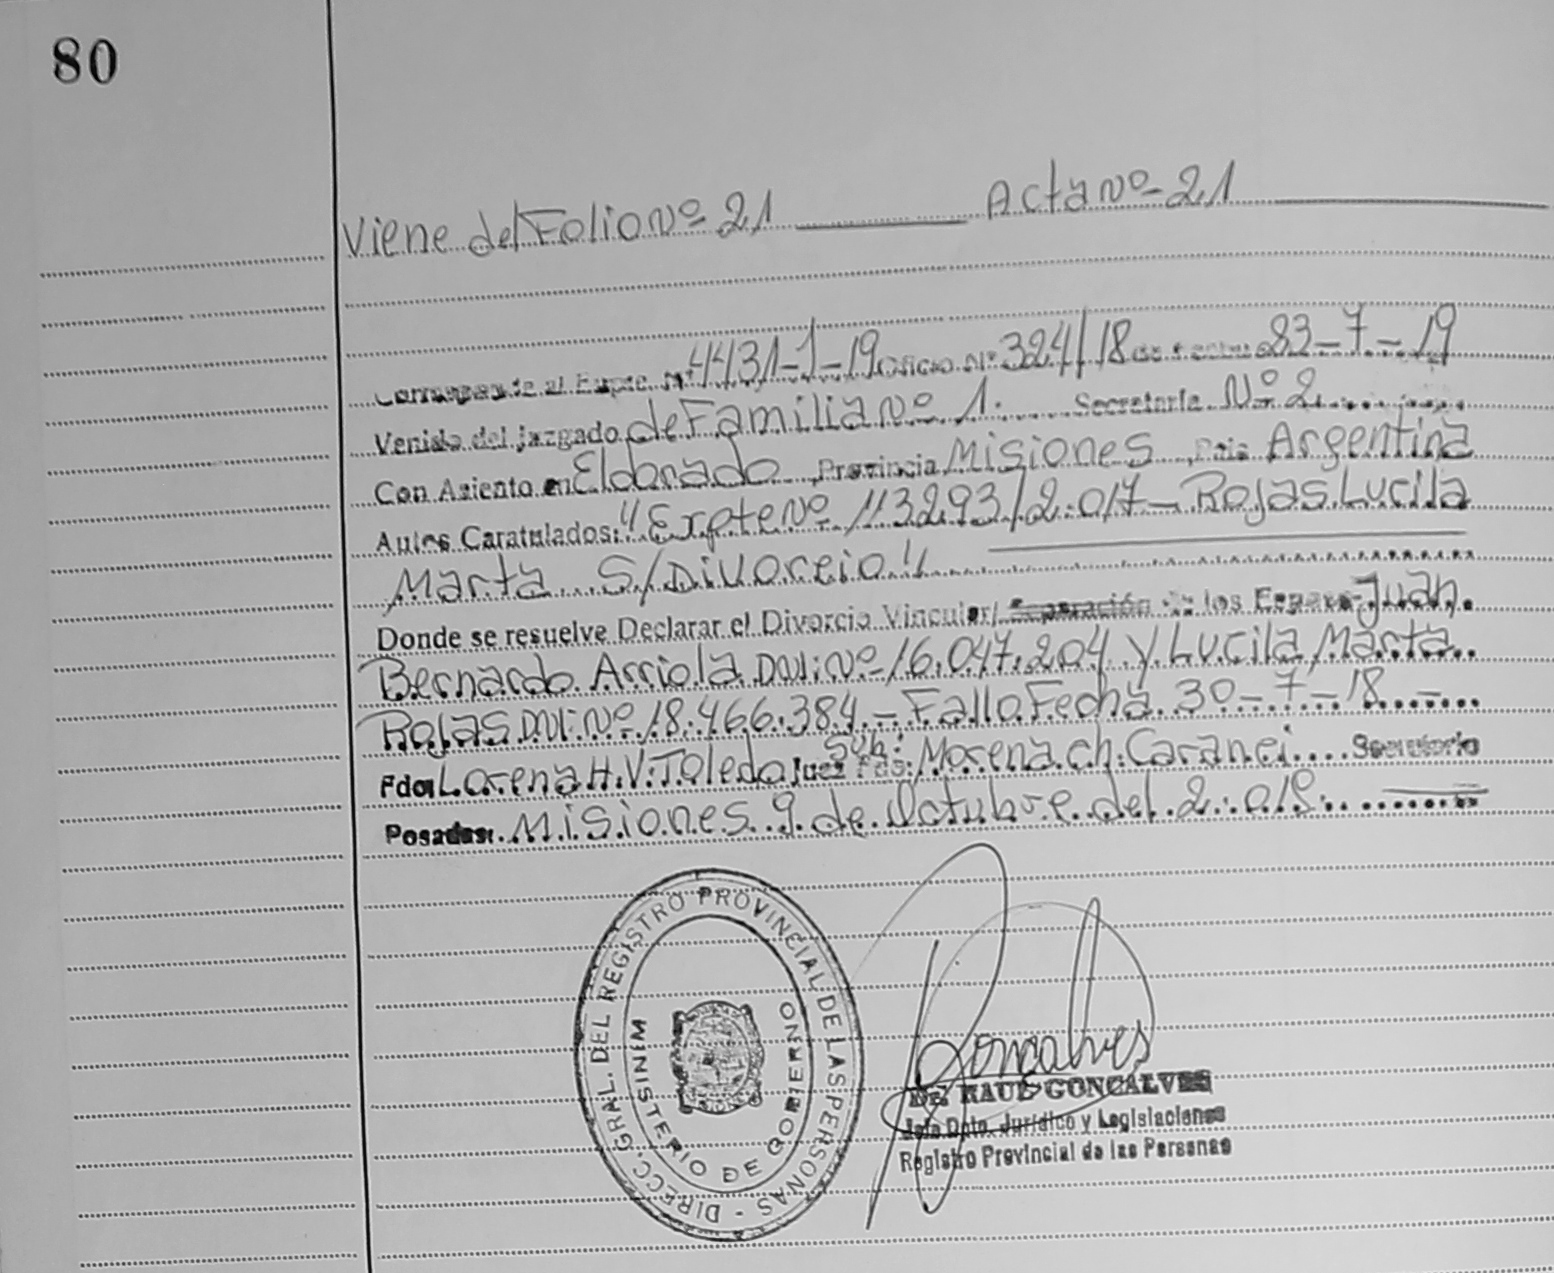 80
Viene del Folio Nº 21 Acta Nº 21
Corresponde al Expte. Nº 4431-1-19 Oficio Nº 324/18 de Fecha 23-7-19
Venido del juzgado de Familia Nº 1. Secretaría Nº 2
Con Asiento en Eldorado, Provincia Misiones, País Argentina
Autos Caratulados: "Expte Nº 113293/2.017 - Rojas Lucila
Marta S/Divorcio"
Donde se resuelve Declarar el Divorcio Vincular/ Separación de los Esposos Juan
Bernardo Arriola DNI: Nº 16.047.204 y Lucila Marta
Rojas DNI: Nº 18.466.384. - Fallo Fecha 30-7-18. -
Fdo: Lorena H.V. Toledo Juez Sub: Fdo: Morena ch. Secretario
Posadas: Misiones 9 de Octubre del
DIRECC. GRAL. DEL REGISTRO PROVINCIAL DE LAS PERSONAS -
MINISTERIO DE GOBIERNO
Goncalves
Dr. RAUL GONCALVES
Jefe Dpto. Jurídico y Legislaciones
Registro Provincial de las Personas